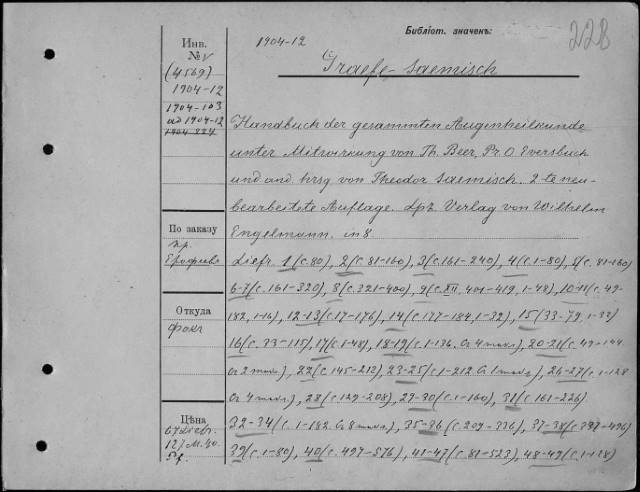 Библіот. значекъ:
228
Инв.
№
1904-12
(4569)
1904-12
1904-103
ad 1904-12
1904-224
Graefe-Saemisch
Handbuch der gesammten Augenheilkunde
unter Mitwirkung von Th. Beer, Pr. O. Eversbuch
und and. hrsg von Theodor Saemisch. 2-te neu-
bearbeitete Auflage. Lpz. Verlag von Wilhelm
Engelmann. in 8.
По заказу
пр.
Откуда
фокг
Цѣна
127 M. 50.
Liefr. 1 (c. 80), 2 (c. 81-160), 3 (c. 161-240), 4 (c. 1-80), 5 (c. 81-160)
6-7 (c. 161-320), 8 (c. 321-400), 9 (c. XII, 401-419, 1-48), 10-11 (c. 49-
182, 1-16), 12-13 (c. 17-176), 14 (c. 177-184, 1-32), 15 (33-79, 1-32)
16 (c. 33-115), 17 (c. 1-48), 18-19 (c. 1-136. Cr 4 табл), 20-21 (c. 49-144
Cr 2 табл), 22 (c. 145-212), 23-25 (c. 1-212 Cr 1 табл), 26-27 (c. 1-128
Cr 4 табл), 28 (c. 129-208), 29-30 (c. 1-160), 31 (c. 161-226)
32-34 (c. 1-182. Cr 8 табл), 35-36 (c. 209-336), 37-38 (c. 337-496)
39 (c. 1-80), 40 (c. 497-576), 41-47 (c. 81-523), 48-49 (c. 1-128)